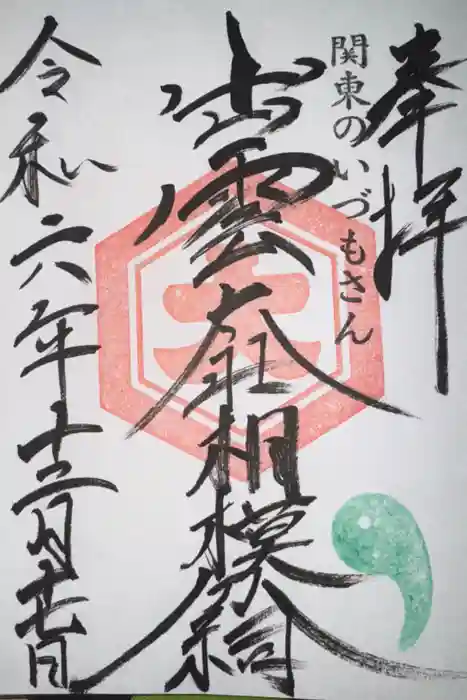 奉拝
関東のいづもさん
出雲大社相模分祠
大
令和六年十二月十七日